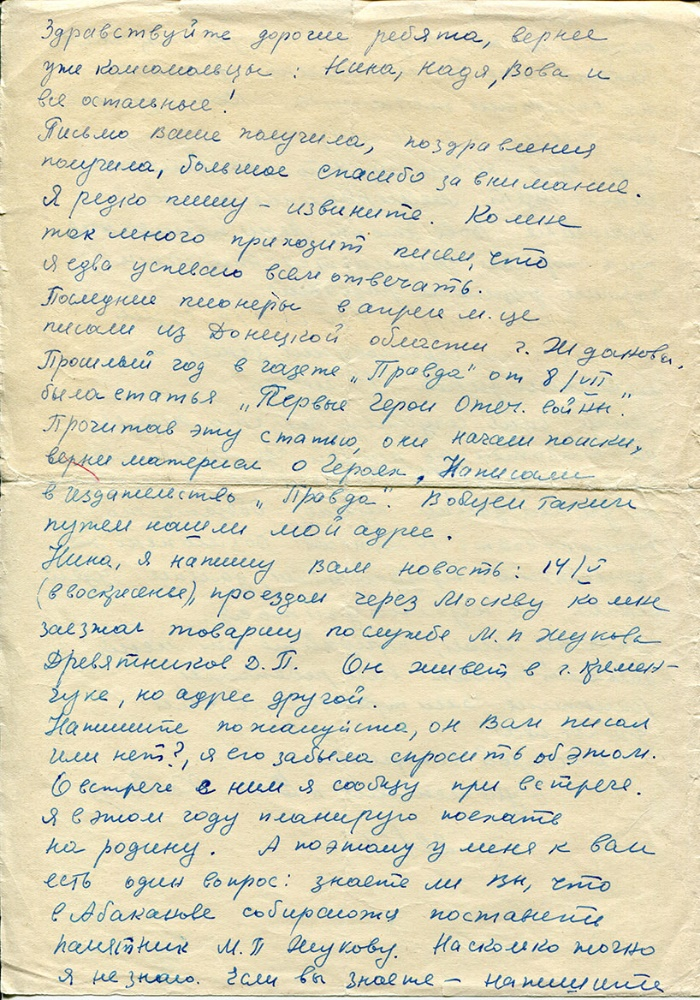 Здравствуйте дорогие ребята, вернее
уже комсомольцы: Нина, Надя, Вова и
все остальные!
Письмо Ваше получила, поздравления
получила, большое спасибо за внимание.
Я редко пишу – извините. Ко мне
так много приходит писем, что
я едва успеваю всем отвечать.
Последние пионеры в апреле м-це
писали из Донецкой области г. Жданова.
Прошлый год в газете „Правда" от 8/VII
была статья „Первые Герои Отеч. войны".
Прочитав эту статью, они начали поиски,
верне материал о Героях. Написали
в издательство „Правда". Вобщем таким
путем нашли мой адрес.
Нина, я напишу Вам новость: 14/V
(в воскресенье), проездом через Москву ко мне
заезжал товарищ по службе М.П. Жукова
Древятников Д.П. Он живет в г. Кремен-
чуке, но адрес другой.
Напишите пожалуйста, он Вам писал
или нет?, я его забыла спросить об этом.
О встрече с ним я сообщу при встрече.
Я в этом году планирую поехать
на родину. А поэтому у меня к вам
есть один вопрос: знаете ли Вы, что
в Абаканове собираются поставить
памятник М.П Жукову. Насколько точно
я не знаю. Если вы знаете – напишите